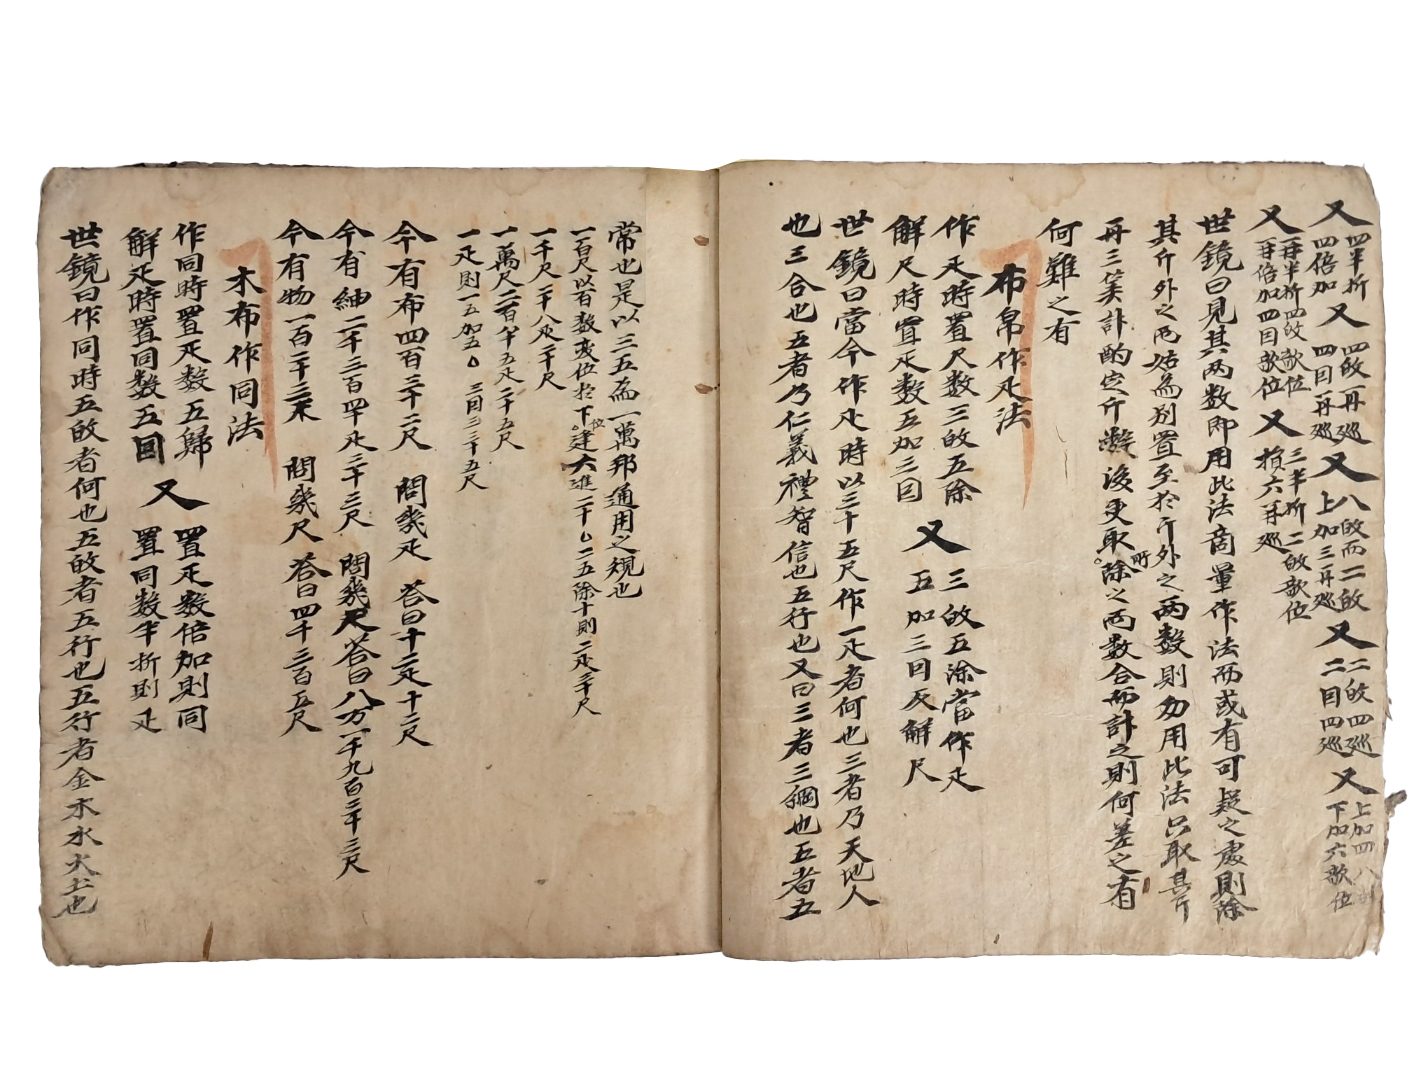 又 四半折 四倍加 又 四㪇一再巡 四囙再巡 又 八㪇而二㪇 上加三再巡 又 二㪇四巡 二囙四巡 又 上加四八 下加六㱆位
又 再半折四㪇㱆位 再倍加四囙㱆位 又 三半折二㪇㱆位 損六再巡
世鏡曰見其两數即用此法商量作法而或有可疑之處則除
其斤外之两姑爲别置至於斤外之两數則勿用此法只取其斤
再三筭計酌定斤數後更取所除之两數合而計之則何差之有
何難之有
布帛作疋法
作疋時置尺數三㪇五除 又 三㪇五除當作疋
解尺時置疋數五加三囙 五加三囙反解尺
世鏡曰當今作疋時以三十五尺作一疋者何也三者乃天地人
也三合也五者乃仁義禮智信也五行也又曰三者三綱也五者五
常也是以三五爲一萬邦通用之規也
一百尺以百數変位於下位逢六進二十五除十則二疋三十尺
一千尺二十八疋二十尺
一萬尺二百八十五疋二十五尺
一疋則一五加五 三囙三三十五尺
今有布四百三十二尺 問幾疋 答曰十二疋十二尺
今有紬二千三百四十疋三十三尺 問幾尺 答曰八万一千九百三十三尺
今有物一百二十三疋 問幾尺 答曰四千三百五尺
木布作同法
作同時置疋數五歸 又 置疋數倍加則同
解疋時置同數五囙 置同數半折則疋
世鏡曰作同時五㪇者何也五㪇者五行也五行者金木水火土也